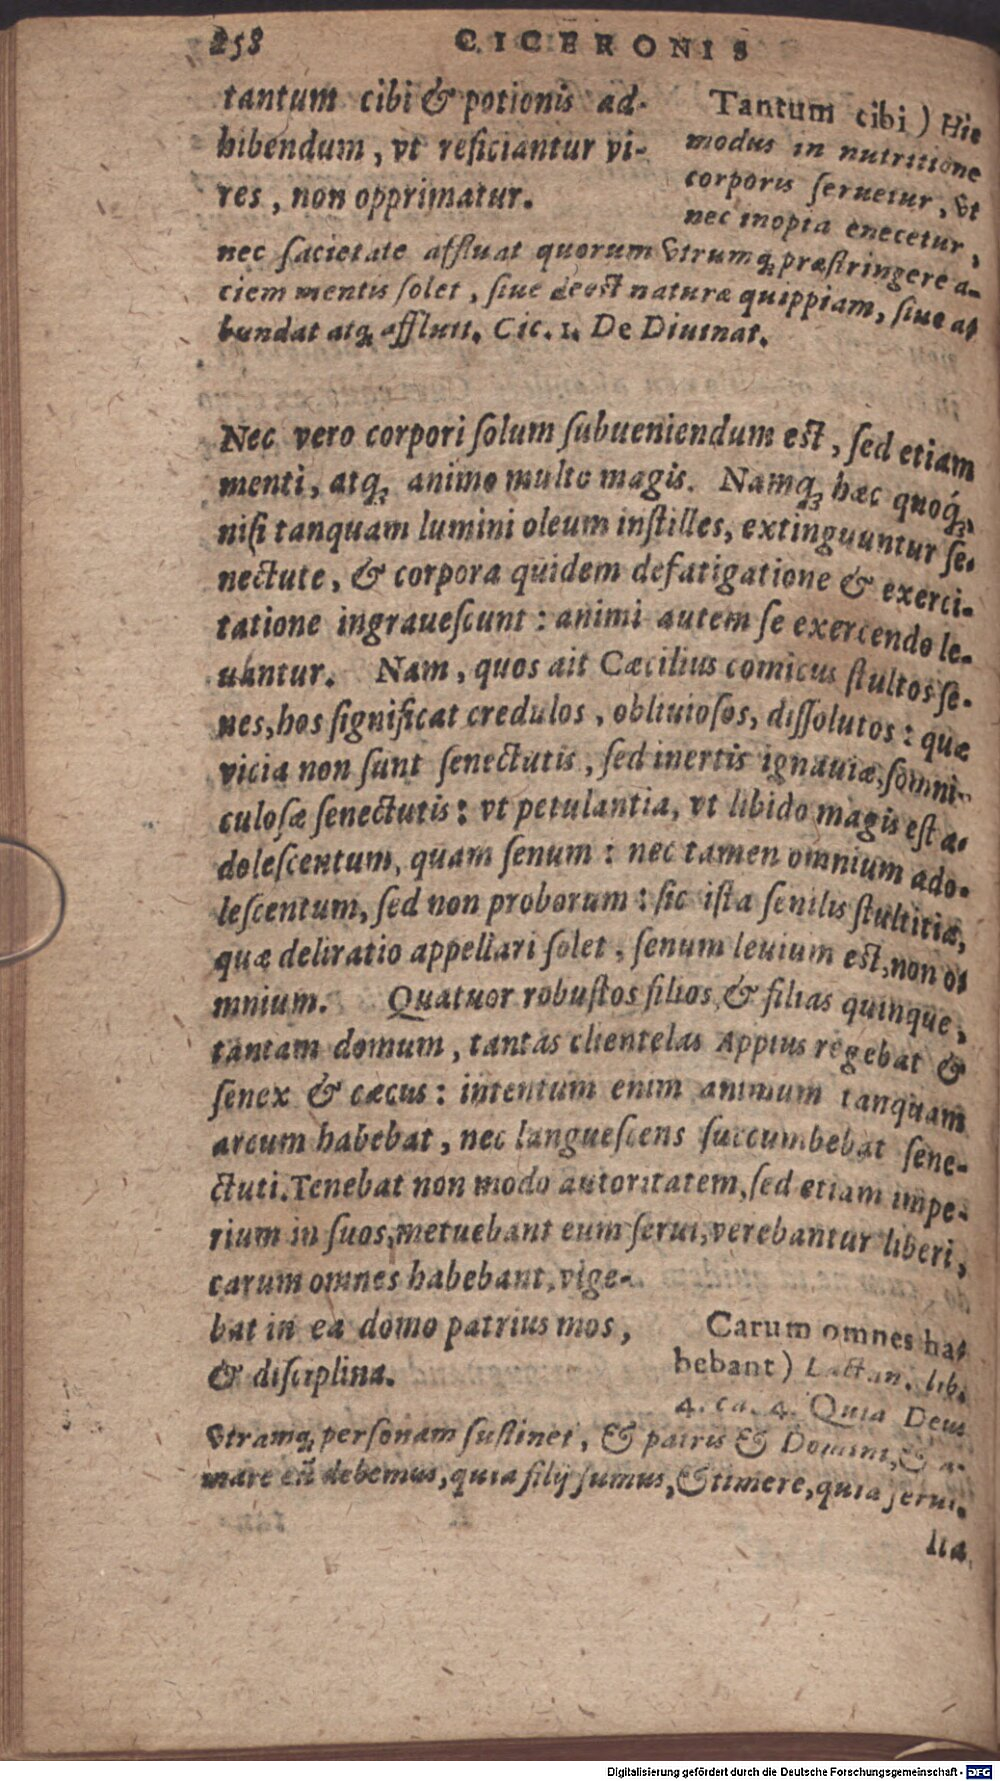 258 CICERONIS
tantum cibi & potionis ad-
hibendum, vt reficiantur vi-
res, non opprimatur.
Tantum cibi) Hic
modus in nutritione
corporis seruetur, vt
nec inopia enecetur,
nec sacietate affluat quorum vtrumq; præstringere a-
ciem mentis solet, siue deest naturæ quippiam, siue a-
bundat atq; affluit. Cic. 1. De Diuinat.
Nec vero corpori solum subueniendum est, sed etiam
menti, atq; animo multo magis. Namq; hæc quoq;
nisi tanquam lumini oleum instilles, extinguuntur se-
nectute, & corpora quidem defatigatione & exerci-
tatione ingrauescunt: animi autem se exercendo le-
uantur. Nam, quos ait Cæcilius comicus stultos se-
nes, hos significat credulos, obliuiosos, dissolutos: quæ
vicia non sunt senectutis, sed inertis ignauiæ, somni-
culosæ senectutis: vt petulantia, vt libido magis est a-
dolescentum, quam senum: nec tamen omnium ado-
lescentum, sed non proborum: sic ista senilis stultitia,
quæ deliratio appellari solet, senum leuium est, non o-
mnium. Quatuor robustos filios, & filias quinque,
tantam domum, tantas clientelas Appius regebat &
senex & cæcus: intentum enim animum tanquam
arcum habebat, nec languescens succumbebat sene-
ctuti. Tenebat non modo autoritatem, sed etiam impe-
rium in suos, metuebant eum serui, verebantur liberi,
carum omnes habebant, vige-
bat in ea domo patrius mos,
& disciplina.
Carum omnes ha-
bebant) Lactan. lib.
4. ca. 4. Quia Deus
vtramq; personam sustinet, & patris & Domini, & a-
mare eũ debemus, quia filij sumus, & timere, quia serui.
Ita
Digitalisierung gefördert durch die Deutsche Forschungsgemeinschaft - DFG